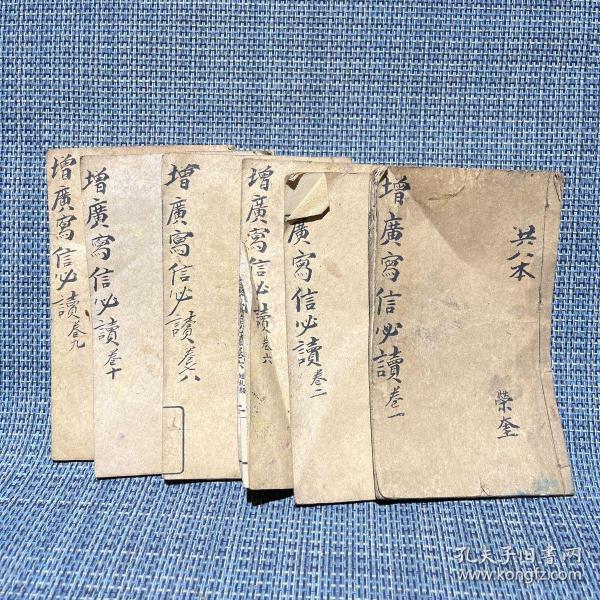 增廣寫信必讀卷九
增廣寫信必讀卷十
增廣寫信必讀卷八
增廣寫信必讀卷六
廣寫信必讀卷二
增廣寫信必讀卷一
共八本
榮奎
孔夫子旧书网
www.kongfz.com